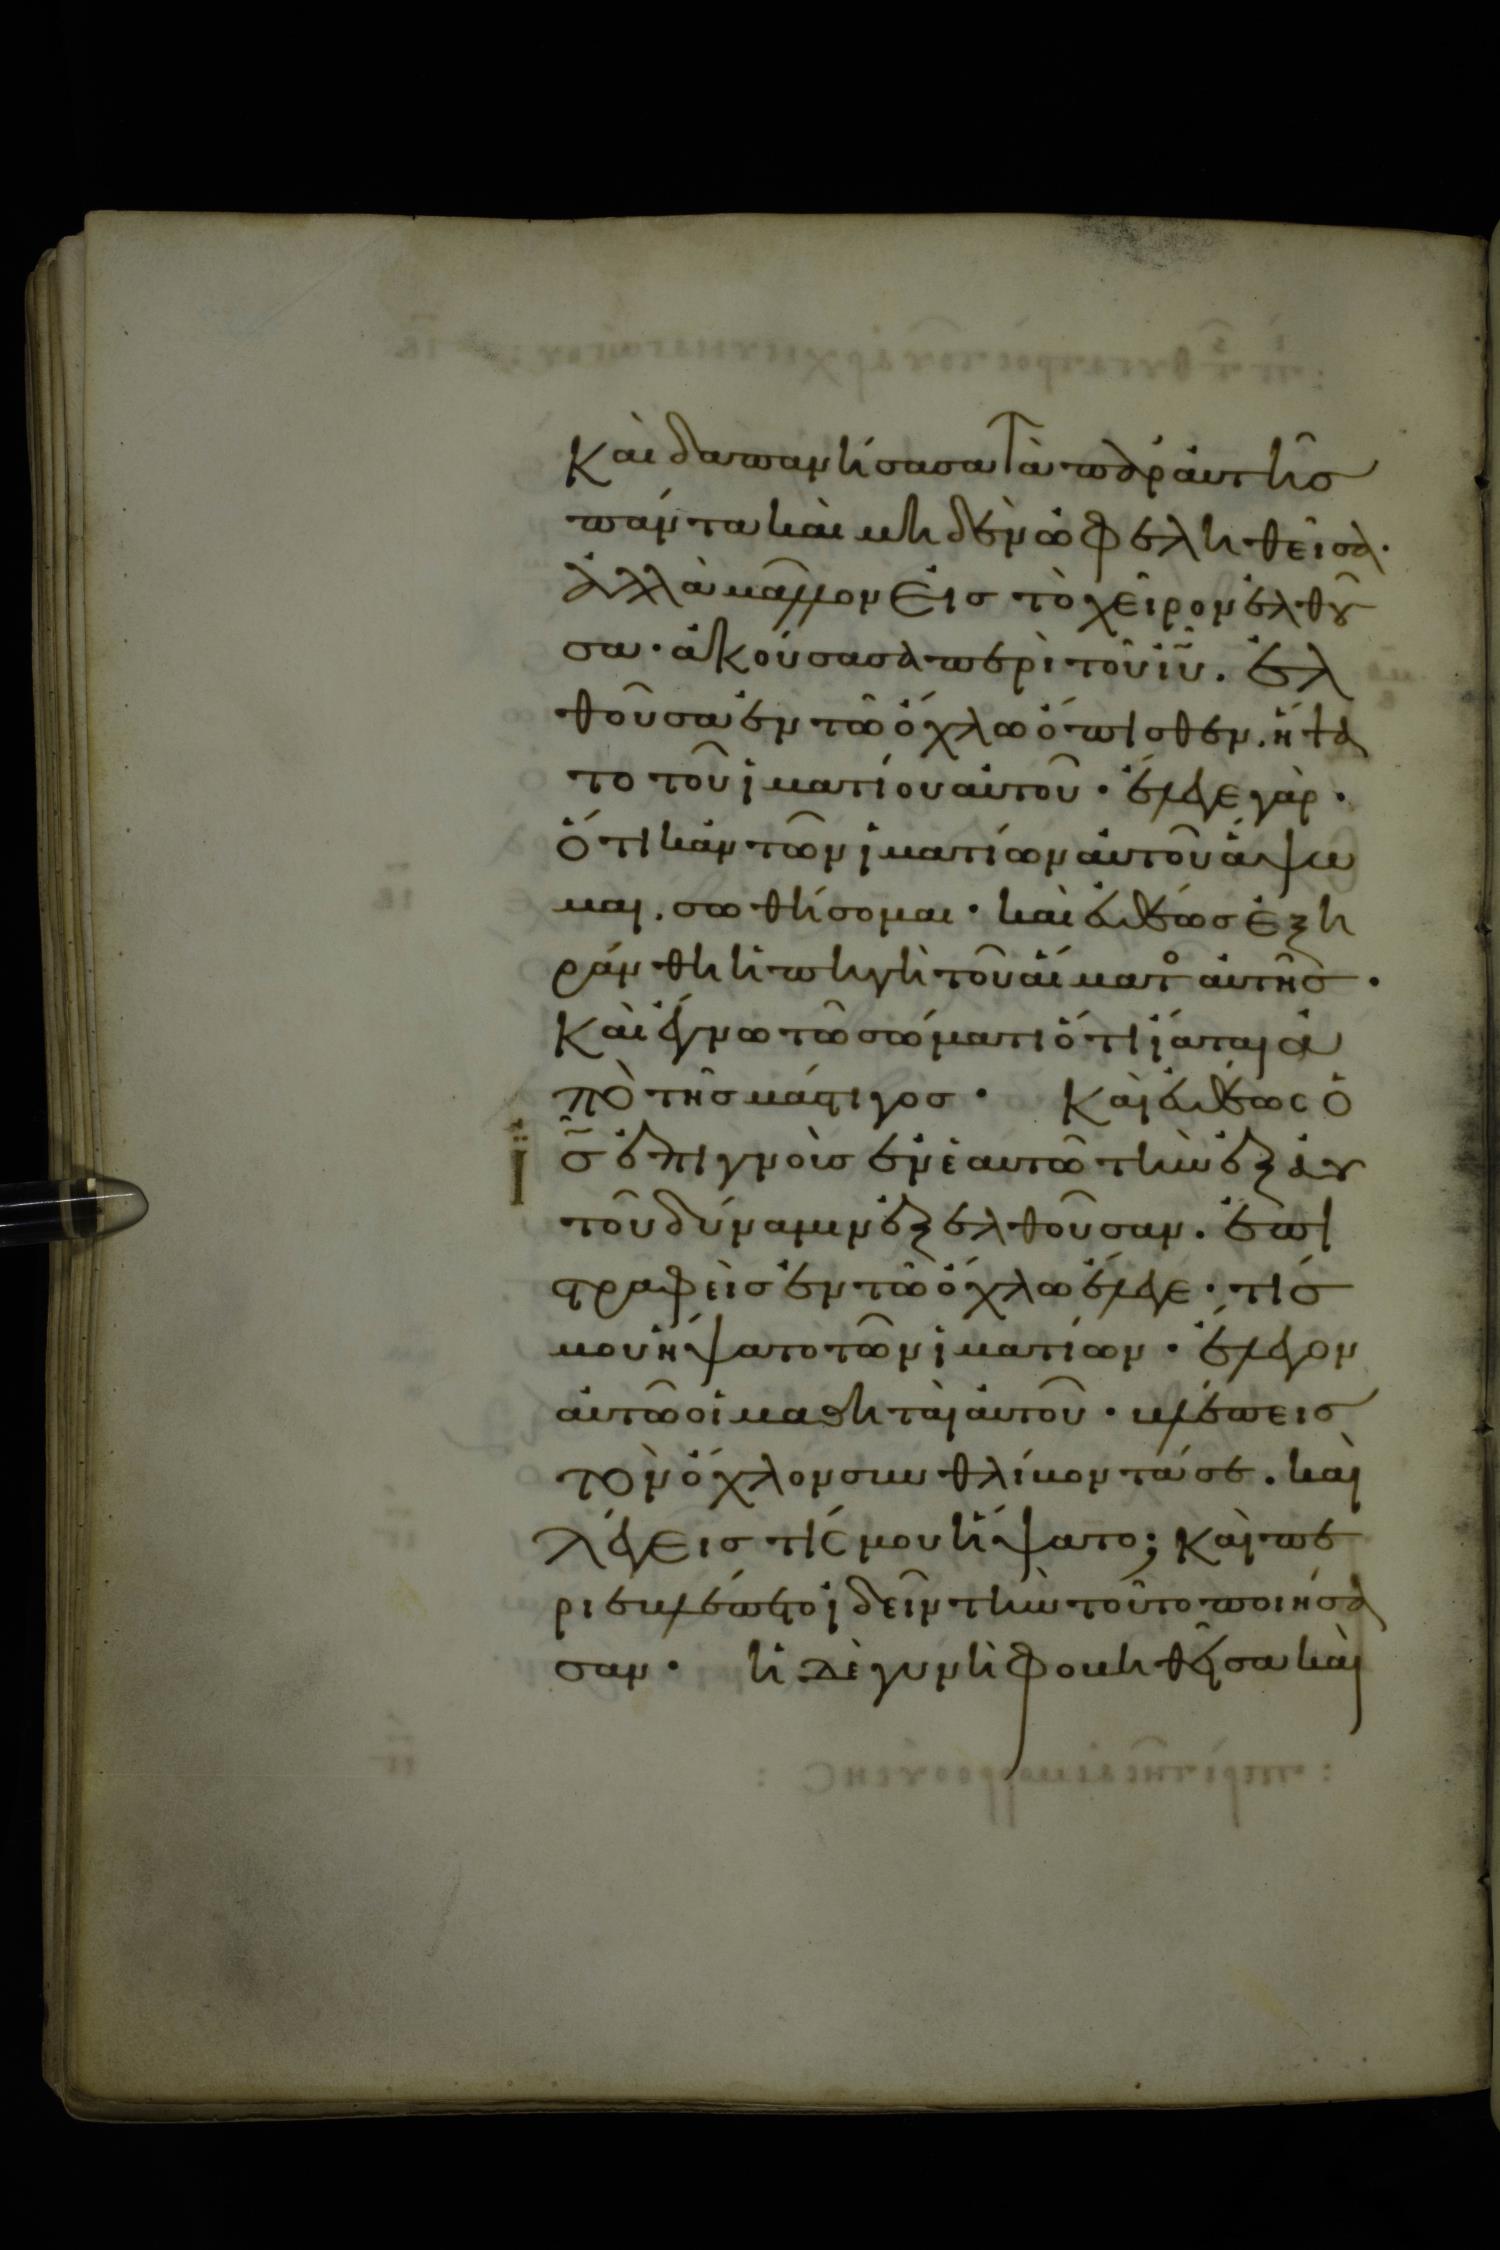 Καὶ δαπανήσασα τὰ παρ' αὐτῆσ
πάντα καὶ μηδὲν ὠφεληθεῖσα·
ἀλλὰ μᾶλλον εἰσ τὸ χεῖρον ἐλθοῦ
σα· ἀκούσασα περὶ τοῦ ἰῦ. ἐλ
θοῦσα ἐν τῶ ὄχλω ὄπισθεν. ἥψα
το τοῦ ἱματίου αὐτοῦ· ἔλεγε γὰρ·
ὅτι κἀν τῶν ἱματίων αὐτοῦ ἅψω
μαι. σωθήσομαι· καὶ εὐθέωσ ἐξη
ράνθη ἡ πηγὴ τοῦ αἵματο αὐτῆσ·
Καὶ ἔγνω τῶ σώματι ὅτι ἴαται ἀ
πὸ τῆσ μάστιγοσ· Καὶ εὐθέωσ ὁ
ἰσ ἐπιγνοὺσ ἐν ἑαυτῶ τὴν ἐξ αυ
τοῦ δύναμιν ἐξελθοῦσαν. ἐπι
στραφεὶσ ἐν τῶ ὄχλω ἔλεγε· τίσ
μου ἥψατο τῶν ἱματίων· ἔλεγον
αὐτῶ οἱ μαθηταὶ αὐτοῦ· βλέπεισ
τὸν ὄχλον συνθλίβοντά σε. καὶ
λέγεισ τίσ μου ἥψατο; Καὶ πε
ριεβλέπετο ἰδεῖν τὴν τοῦτο ποιήσα
σαν· ἡ δὲ γυνὴ φοβηθεῖσα καὶ